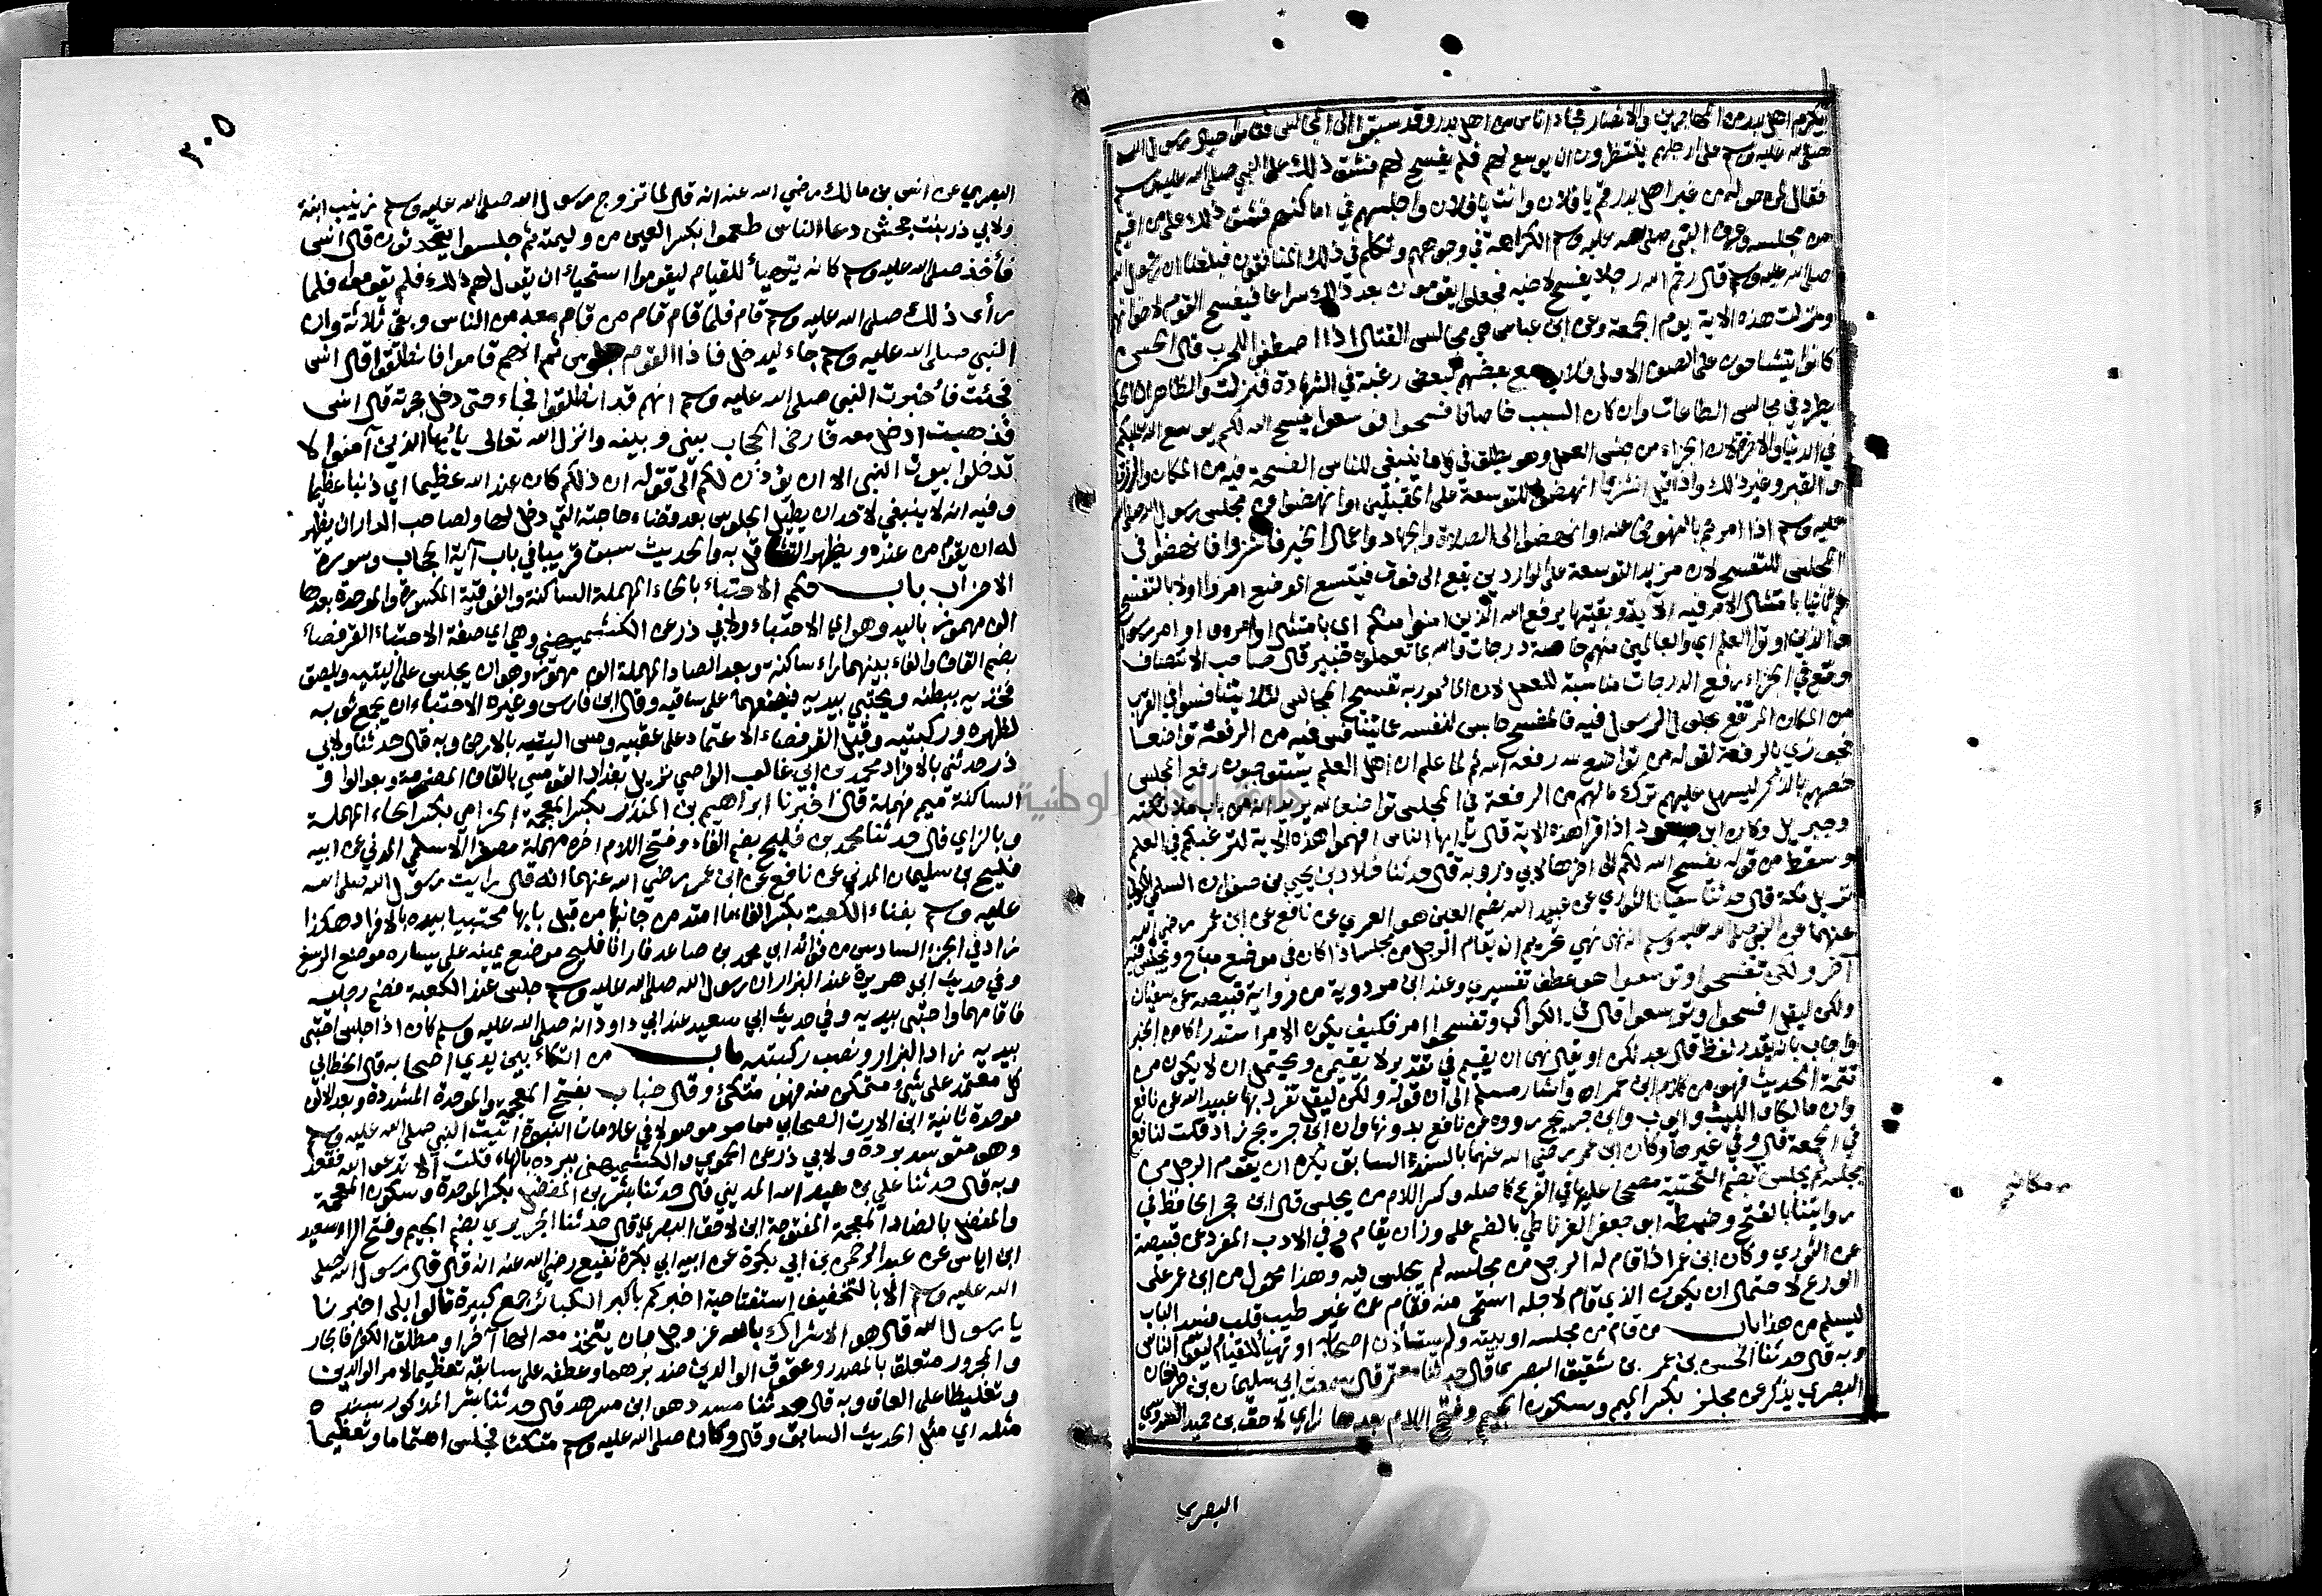 يكرم اهل بدر من المهاجرين والانصار فجاء اناس من اهل بدر وقد سبقوا الى المجالس فقاموا حيال رسول الله
صلى الله عليه وسلم على ارجلهم ينتظرون ان يوسع لهم فلم يفسح لهم فشق ذلك على النبي صلى الله عليه وسلم
فقال لمن حوله من غير اهل بدر قم يا فلان وانت يا فلان واجلسهم في اماكنهم فشق ذلك على من اقيم
من مجلسه وعرف النبي صلى الله عليه وسلم الكراهة في وجوههم وتكلم في ذلك المنافقون فبلغنا ان رسول الله
صلى الله عليه وسلم قال رحم الله رجلا يفسح لاخيه فجعلوا يقومون بعد ذلك سراعا فيفسح القوم لاخوانهم
ونزلت هذه الاية يوم الجمعة وعن ابن عباس هي مجالس القتال اذا اصطفوا للحرب قال الحسن
كانوا يتشاحون على الصف الاول فلا يوسع بعضهم لبعض رغبة في الشهادة فنزلت والظاهر ان الحكم
يطرد في مجالس الطاعات وان كان السبب خاصا فافسحوا فوسعوا يفسح الله لكم يوسع الله عليكم
في الدنيا والاخرة لان الجزاء من جنس العمل وهو مطلق في كل ما ينبغي للناس الفسحة فيه من المكان والرزق
والقبر وغير ذلك واذا قيل انشزوا انهضوا للتوسعة على المقبلين او انهضوا عن مجلس رسول الله صلى الله
عليه وسلم اذا امرتم بالنهوض عنه او انهضوا الى الصلاة والجهاد واعمال الخير فانشزوا فانهضوا في
المجلس للتفسح لان مريد التوسعة على الوارد يرتفع الى فوق فيتسع الموضع امروا اولا بالتفسح
ثم ثانيا بامتثال الامر فيه الآية وبقيتها يرفع الله الذين امنوا منكم اي بامتثال اوامره واوامر رسوله
والذين اوتوا العلم اي والعالمين منهم خاصة درجات والله بما تعملون خبير قال صاحب الانتصاف
وقع في الجزاء رفع الدرجات مناسبة للعمل لان المامور به تفسيح المجالس لئلا يتنافسوا في القرب
من المكان المرتفع بحلول الرسول فيه فالمفسح حابس لنفسه عما يتنافس فيه من الرفعة تواضعا
فجوزي بالرفعة لقوله من تواضع لله رفعه الله ثم لما علم ان اهل العلم يستوجبون رفع المجلس
خصهم بالذكر ليسهل عليهم ترك ما لهم من الرفعة في المجلس تواضعا لله يريد انه من باب ملائكته
وجبريل وكان ابن مسعود اذا قرا هذه الاية قال يا ايها الناس افهموا هذه الاية لترغبكم في العلم
وسقط من قوله يفسح الله لكم الى اخرها لابي ذر وبه قال حدثنا خلاد بن يحيى بن صفوان السلمي الكوفي
نزيل مكة قال حدثنا سفيان الثوري عن عبيد الله بضم العين هو العمري عن نافع عن ابن عمر رضي الله
عنهما عن النبي صلى الله عليه وسلم انه نهى نهي تحريم ان يقام الرجل من مجلسه اذا كان في موضع مباح ويجلس فيه
آخر ولكن تفسحوا وتوسعوا هو عطف تفسيري وعند ابن مردويه من رواية قبيصة عن سفيان
ولكن ليقل افسحوا وتوسعوا قال في الكواكب وتفسحوا امر فكيف يكون الامر استدراكا من الخبر
واجاب بانه يقدر لفظ قال بعد لكن او يقال نهى ان يقيم في تقدير لا يقيمن ويحتمل ان لا يكون من
تتمة الحديث فهو من كلام ابن عمر اه واشار مسلم الى ان قوله ولكن ليقل تفرد بها عبيد الله عن نافع
وان مالكا والليث وايوب وابن جريج رووه عن نافع بدونها وان ابن جريج زاد قلت لنافع
في الجمعة قال وفي غيرها وكان ابن عمر رضي الله عنهما بالسند السابق يكره ان يقوم الرجل من
مجلسه ثم يجلس بضم التحتية مصححا عليها في الفرع كاصله وكسر اللام من يجلس قال ابن حجر الحافظ في
روايتنا بالفتح وضبطه ابو جعفر الغرناطي بالضم على وزان يقام وفي الادب المفرد عن قبيصة
عن الثوري وكان ابن عمر اذا قام له الرجل من مجلسه لم يجلس فيه وهذا محمول من ابن عمر على
الورع لاحتمال ان يكون الذي قام لاجله استحى منه فقام عن غير طيب قلب فسد الباب
ليسلم من هذا باب من قام من مجلسه او بيته ولم يستأذن اصحابه او تهيأ للقيام ليقوم الناس
وبه قال حدثنا الحسن بن عمر بن شقيق البصري قال حدثنا معتمر قال سمعت ابي سليمان بن طرخان
البصري يذكر عن مجلز بكسر الميم وسكون الجيم وفتح اللام بعدها زاي لاحق بن حميد السدوسي
البصري
٣٠٥
البصري عن انس بن مالك رضي الله عنه انه قال لما تزوج رسول الله صلى الله عليه وسلم زينب ابنة
ولابي ذر بنت جحش دعا الناس طعموا بكسر العين من وليمته ثم جلسوا يتحدثون قال انس
فأخذ صلى الله عليه وسلم كانه يتهيأ للقيام ليقوموا استحياء ان يقول لهم ذلك فلم يقوموا فلما
رأى ذلك صلى الله عليه وسلم قام فلما قام قام من قام معه من الناس وبقي ثلاثة وان
النبي صلى الله عليه وسلم جاء ليدخل فاذا القوم جلوس ثم انهم قاموا فانطلقوا قال انس
فجئت فأخبرت النبي صلى الله عليه وسلم انهم قد انطلقوا فجاء حتى دخل حجرته قال انس
فذهبت ادخل معه فارخى الحجاب بيني وبينه وانزل الله تعالى يا أيها الذين آمنوا لا
تدخلوا بيوت النبي الا ان يؤذن لكم الى قوله ان ذلكم كان عند الله عظيما اي ذنبا عظيما
وفيه انه لا ينبغي لاحد ان يطيل الجلوس بعد قضاء حاجته التي دخل لها ولصاحب الدار ان يظهر
له ان يقوم من عنده ويظهر التثاقل به والحديث سبق قريبا في باب آية الحجاب وسورة
الاحزاب باب حكم الاحتباء بالحاء المهملة الساكنة والفوقية المكسورة والموحدة بعدها
الف مهموز باليد وهو اي الاحتباء ولابي ذر عن الكشميهني وهي اي صفة الاحتباء القرفصاء
بضم القاف والفاء بينهما راء ساكنة وبعد الصاد المهملة الف مهموز وهو ان يجلس على اليتيه ويلصق
فخذيه ببطنه ويحتبي بيديه فيضعهما على ساقيه وقال ابن فارس وغيره الاحتباء ان يجمع ثوبه
لظهره وركبتيه وقيل القرفصاء الاعتماد على عقبيه ومس اليتيه بالارض وبه قال حدثنا ولابي
ذر حدثني بالافراد محمد بن ابي غالب الواسطي نزيل بغداد القومسي بالقاف المضمومة وبعد الواو
الساكنة ميم فمهملة قال اخبرنا ابراهيم بن المنذر بكسر المعجمة الحزامي بكسر الحاء المهملة
وبالزاي قال حدثنا محمد بن فليح بضم الفاء وفتح اللام اخره مهملة مصغرا الاسلمي المدني عن ابيه
فليح بن سليمان المدني عن نافع عن ابن عمر رضي الله عنهما انه قال رايت رسول الله صلى الله
عليه وسلم بفناء الكعبة بكسر الفاء ما امتد من جانبها من قبل بابها محتبيا بيده بالافراد هكذا
زاد في الجزء السادس من فوائد ابي محمد بن صاعد فارانا فليح موضع يمينه على يساره موضع الرسغ
وفي حديث ابي هريرة عند البزار ان رسول الله صلى الله عليه وسلم جلس عند الكعبة فضم رجليه
فاقامهما واحتبى بيديه وفي حديث ابي سعيد عند ابي داود انه صلى الله عليه وسلم كان اذا جلس احتبى
بيديه زاد البزار ونصب ركبتيه باب من اتكأ بين يدي اصحابه قال الخطابي
كل معتمد على شيء متمكن منه فهو متكئ وقال خباب بفتح المعجمة والموحدة المشددة وبعد الالف
موحدة ثانية ابن الارت الصحابي مما هو موصول في علامات النبوة اتيت النبي صلى الله عليه وسلم
وهو متوسد بردة ولابي ذر عن الحموي والكشميهني ببرده بالهاء قلت ألا تدعو الله فقعد
وبه قال حدثنا علي بن عبد الله المديني قال حدثنا بشر بن المفضل بكسر الموحدة وسكون المعجمة
والمفضل بالضاد المعجمة المفتوحة ابن لاحق البصري قال حدثنا الجريري بضم الجيم وفتح الراء سعيد
ابن اياس عن عبد الرحمن بن ابي بكرة عن ابيه ابي بكرة نفيع رضي الله عنه انه قال قال رسول الله صلى
الله عليه وسلم ألا بالتخفيف استفتاحية اخبركم باكبر الكبائر جمع كبيرة قالوا بلى اخبرنا
يا رسول الله قال هو الاشراك بالله عز وجل بان يتخذ معه الها آخر او مطلق الكفر فالجار
والمجرور متعلق بالمصدر وعقوق الوالدين ضد برهما وعطفه على سابقه تعظيما لامر الوالدين
وتغليظا على العاق وبه قال حدثنا مسدد هو ابن مسرهد قال حدثنا بشر المذكور بسنده
مثله اي مثل الحديث السابق وقال وكان صلى الله عليه وسلم متكئا فجلس اهتماما وتعظيما